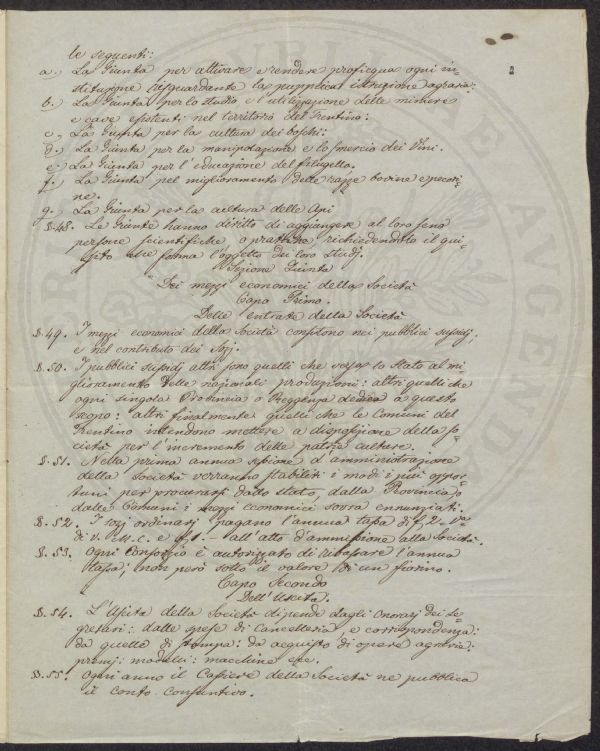 le seguenti:
a., La Giunta per attivare e rendere proficqua ogni in=
stituzione risguardante la pupplica istruzione agraria:
b., La Giunta per lo studio e l'utilizzazione delle miniere
e cave esistenti nel territorio del Trentino:
c., La Giunta per la cultura dei boschi:
d., La Giunta per la manipolazione e lo smercio dei Vini.
e., La Giunta per l'educazione del filugello.
f., La Giunta pel miglioramento delle razze bovine e pecori=
ne.
g., La Giunta per la cultura delle Api
§. 48. Le Giunte hanno diritto di aggiungere al loro seno
persone scientifiche o pratiche richiedendolo il qui=
sito che forma l'oggetto dei loro studj.
Sezione Quinta
Dei mezzi economici della Società
Capo Primo.
Delle entrate della Società
§. 49. I mezzi economici della Società consistono nei pubblici sussidj,
e nel contributo dei Socj.
§. 50. I pubblici sussidj altri sono quelli che versa lo Stato al mi=
glioramento delle nazionali produzioni: altri quelli che
ogni singola Provincia o Reggenza dedica a questo
scopo: altri finalmente quelli che le Comuni del
Trentino intendono mettere a disposizione della So=
cietà per l'incremento delle patrie culture.
§. 51. Nella prima annua sessione d'amministrazione
della Società verranno stabiliti i modi i più oppor=
tuni per procurarsi dallo Stato, dalla Provincia, o
dalle Comuni i mezzi economici sovra ennunziati.
§. 52. I socj ordinarj pagano l'annua tassa di f. 2 - Va
di V. M. C. e f. 1. - all'atto d'ammissione alla Società.
§. 53. Ogni Consorzio è autorizzato di ribassare l'annua
tassa, non però sotto il valore di un fiorino.
Capo Secondo
Dell'Uscita.
§. 54. L'Uscita della Società dipende dagli Onorarj dei Se=
gretari: dalle spese di Cancelleria, e corrispondenza:
da quelle di stampa: da acquisto di opere agrarie:
premj: modelli: macchine ecc.
§. 55. Ogni anno il Cassiere della Società ne pubblica
il conto consuntivo.